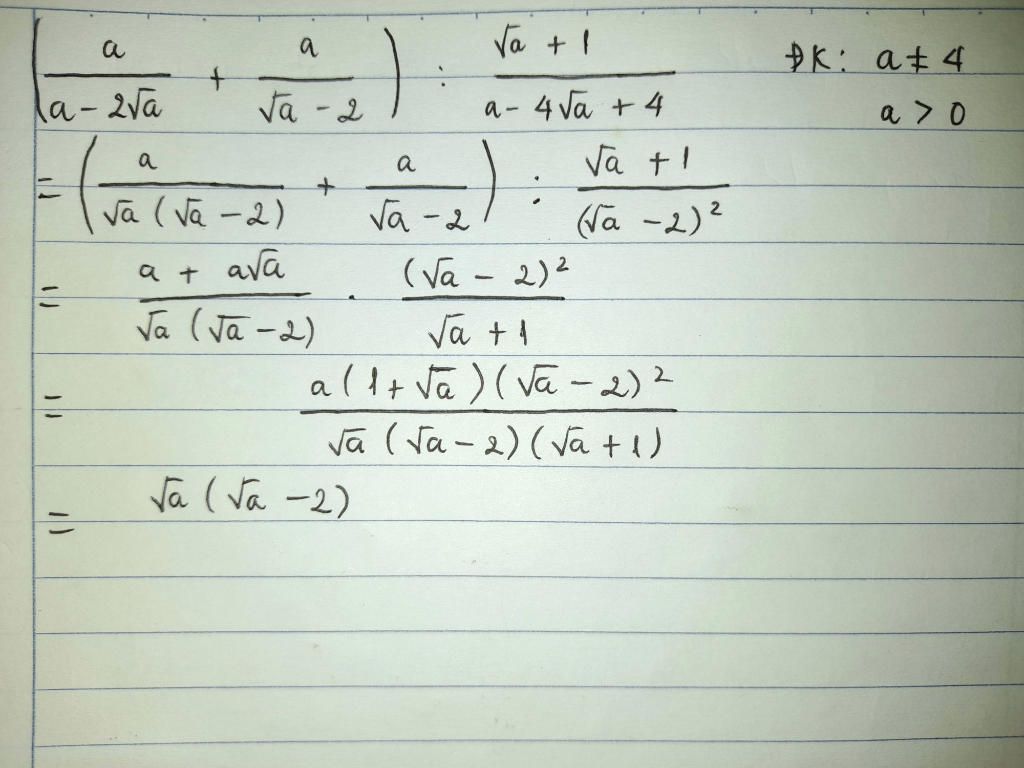 (a/(a - 2√a) + a/(√a - 2)) : (√a + 1)/(a - 4√a + 4) ĐK: a ≠ 4
a > 0
= (a/(√a (√a - 2)) + a/(√a - 2)) : (√a + 1)/(√a - 2)²
= (a + a√a)/(√a (√a - 2)) . (√a - 2)²/(√a + 1)
= a(1 + √a)(√a - 2)²/(√a (√a - 2)(√a + 1))
= √a (√a - 2)